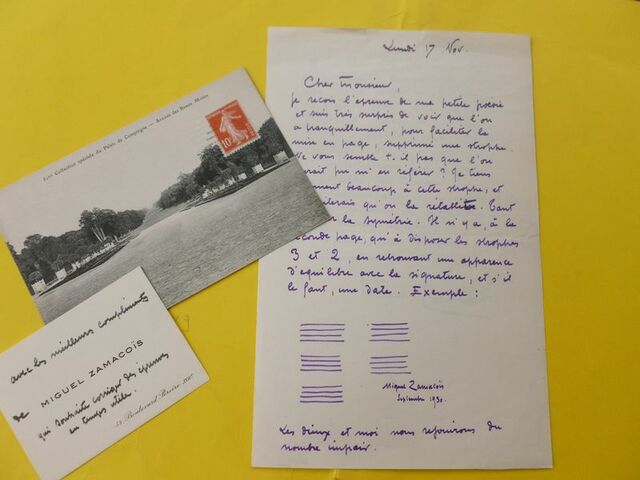 Lundi 17 Nov.
Cher Monsieur,
je reçois l'épreuve de ma petite poésie
et suis très surpris de voir que l'on
a tranquillement, pour faciliter la
mise en page, supprimé une strophe.
Ne vous semble-t-il pas que l'on
rait pu m'en référer? Je tiens
ment beaucoup à cette strophe, et
lerais qu'on la rétablît. Tant
la symétrie. Il n'y a, à la
conde page, qu'à disposer les strophes
3 et 2, en retrouvant une apparence
d'équilibre avec la signature, et s'il
le faut, une date. Exemple:
Miguel Zamacoïs
Septembre 1930.
Les dieux et moi nous réjouirons du
nombre impair.
Collection spéciale du Palais de Compiègne - Avenue des Beaux Monts
10c
avec les meilleurs compliments
de MIGUEL ZAMACOÏS
qui souhaite corriger des épreuves
en temps utile.
Boulevard Pereire